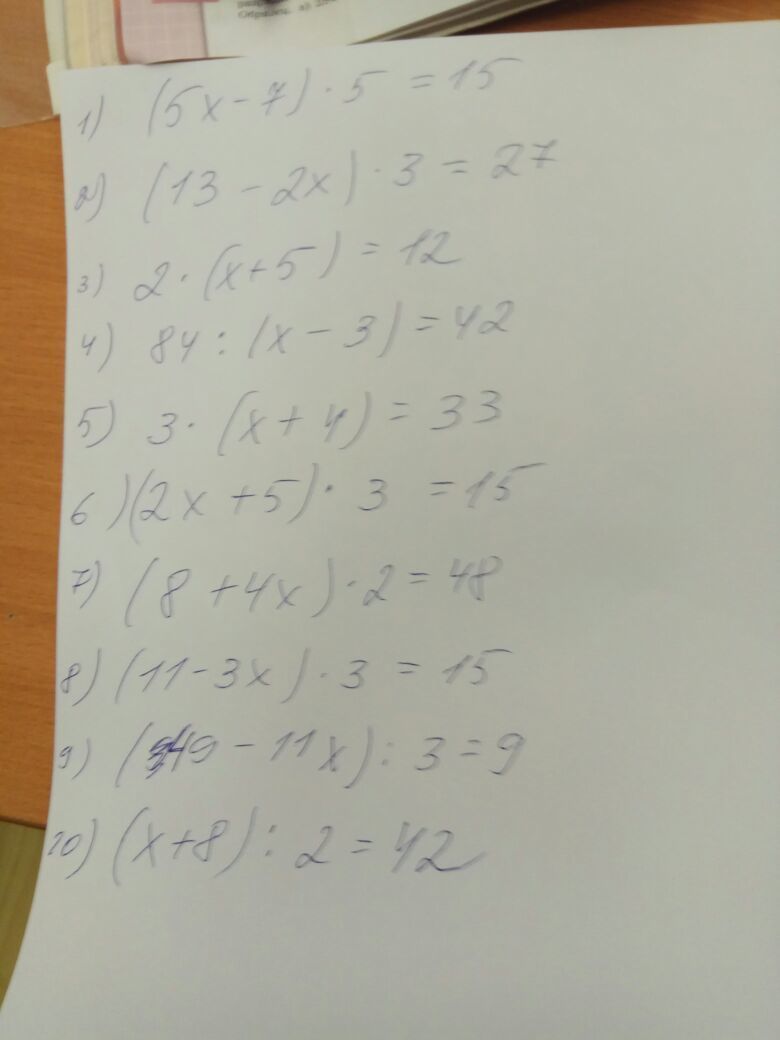 1) (5x - 7) · 5 = 15
2) (13 - 2x) · 3 = 27
3) 2 · (x + 5) = 12
4) 84 : (x - 3) = 42
5) 3 · (x + 4) = 33
6) (2x + 5) · 3 = 15
7) (8 + 4x) · 2 = 48
8) (11 - 3x) · 3 = 15
9) (49 - 11x) : 3 = 9
10) (x + 8) : 2 = 42